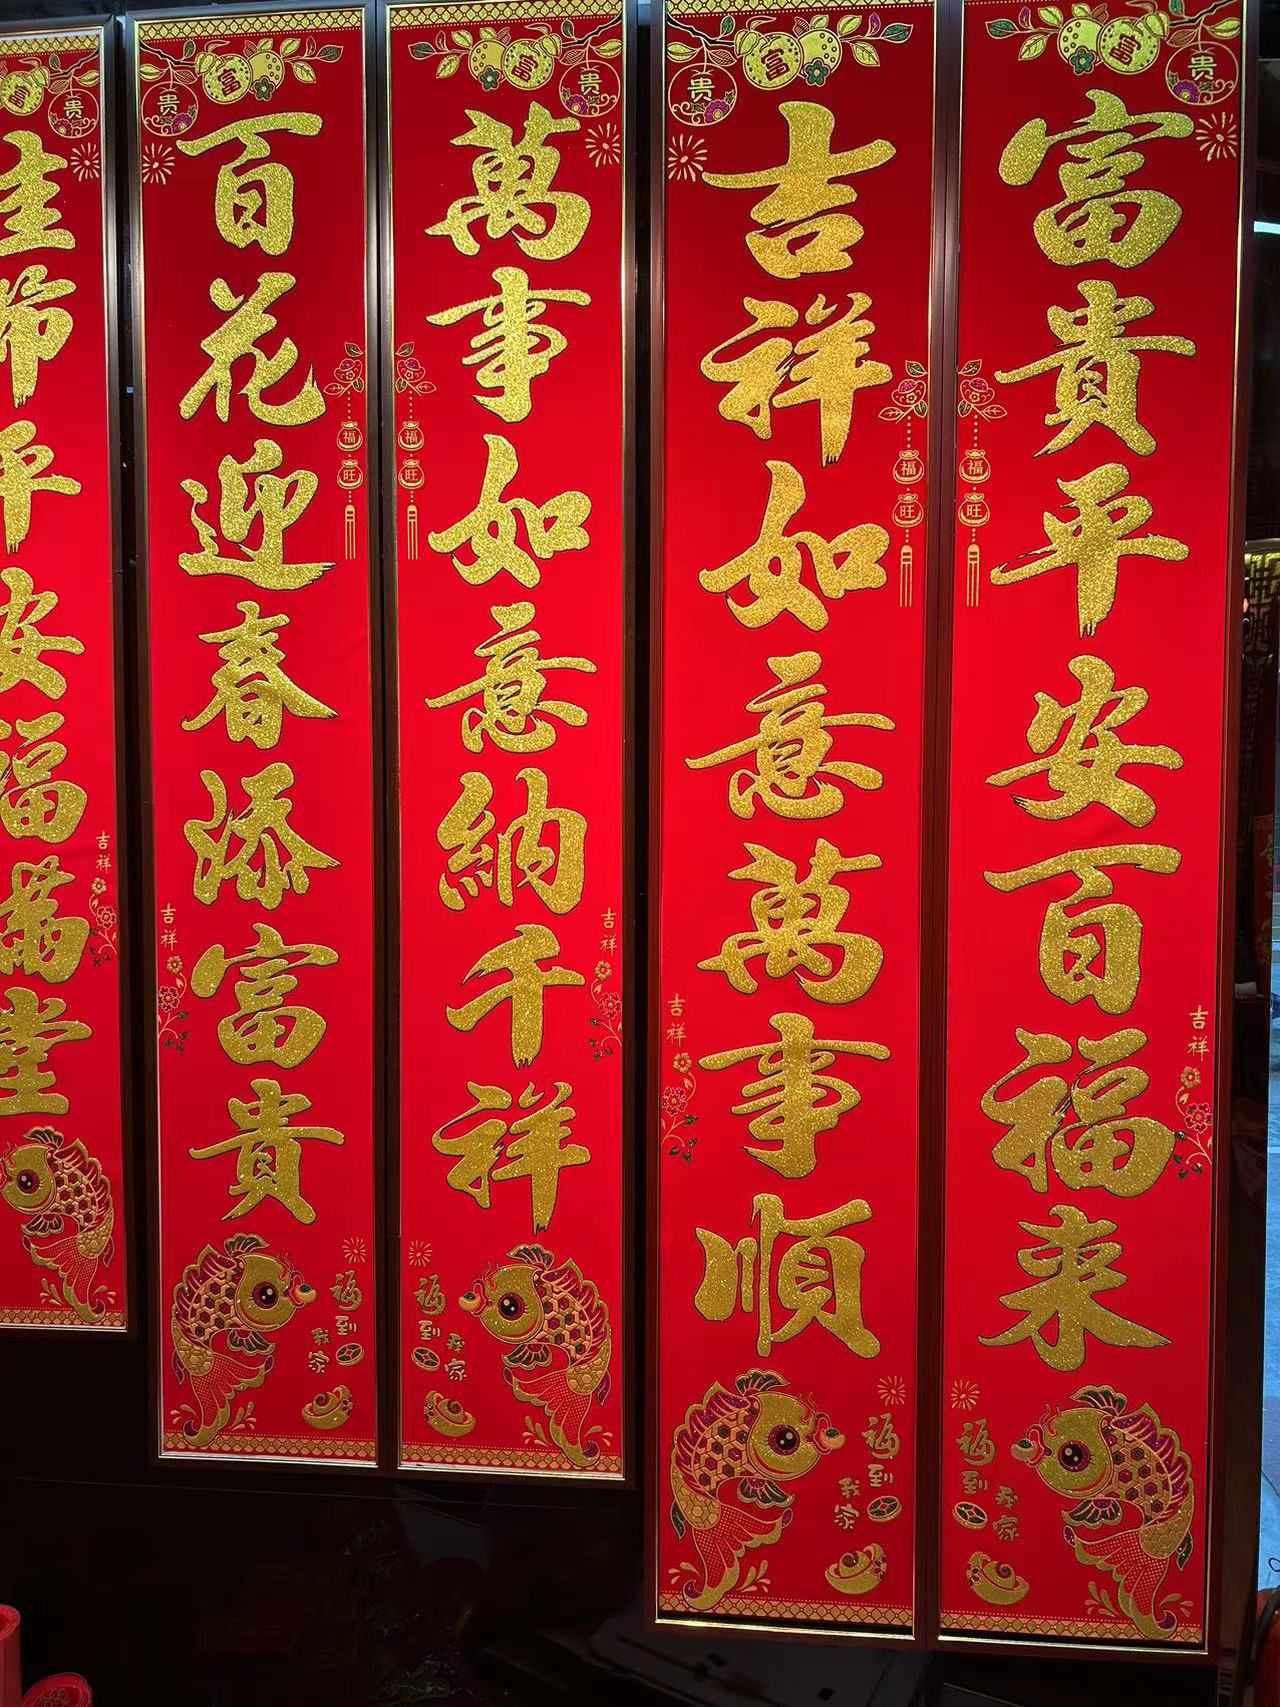 富貴平安百福来
吉祥如意萬事順
萬事如意納千祥
百花迎春添富貴
佳節平安福滿堂
富
贵
福
旺
吉祥
福到
我家
富
贵
福
旺
吉祥
福到
我家
富
贵
福
旺
吉祥
福到
我家
富
贵
福
旺
吉祥
福到
我家
富
贵
吉祥